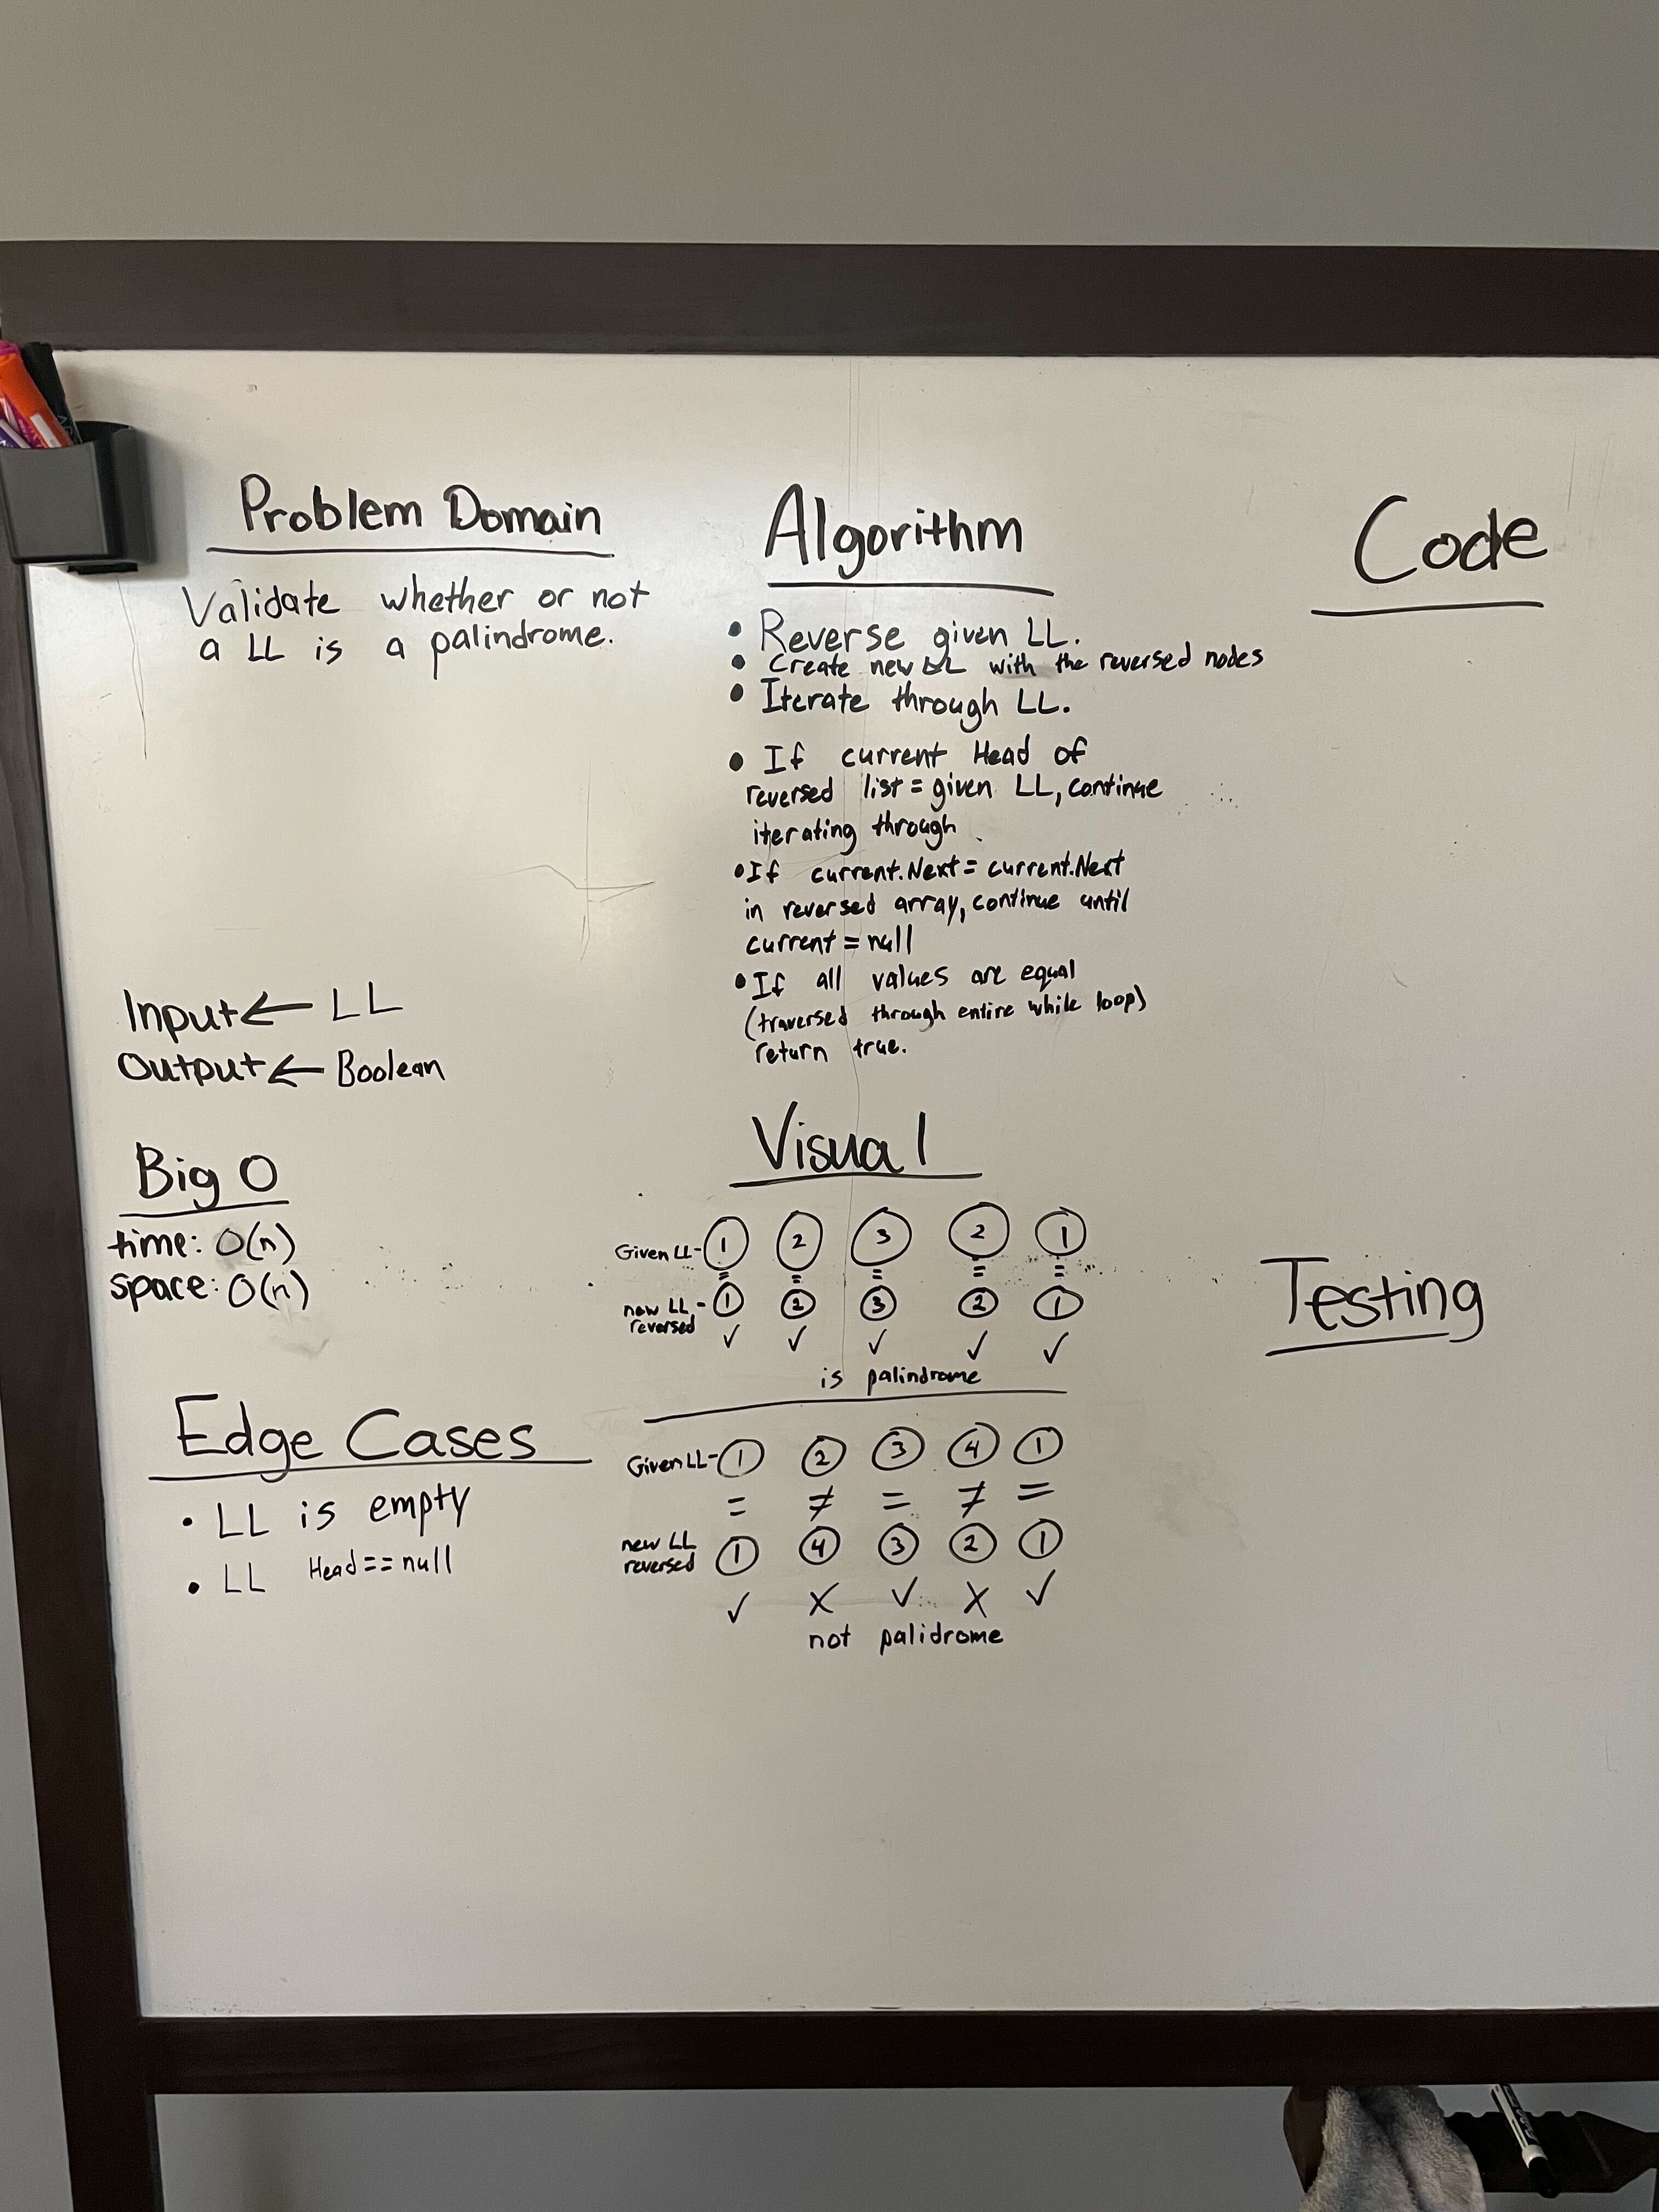 Problem Domain
Validate whether or not
a LL is a palindrome.
Input ← LL
Output ← Boolean
Big O
time: O(n)
space: O(n)
Edge Cases
• LL is empty
• LL Head == null
Algorithm
• Reverse given LL.
• Create new LL with the reversed nodes
• Iterate through LL.
• If current Head of
reversed list = given LL, continue
iterating through.
• If current.Next = current.Next
in reversed array, continue until
current = null
• If all values are equal
(traversed through entire while loop)
return true.
Visual
Given LL - 1 2 3 2 1
= = = = =
new LL - 1 2 3 2 1
reversed
✓ ✓ ✓ ✓ ✓
is palindrome
Given LL - 1 2 3 4 1
= ≠ = ≠ =
new LL
reversed 1 4 3 2 1
✓ X ✓ X ✓
not palidrome
Code
Testing